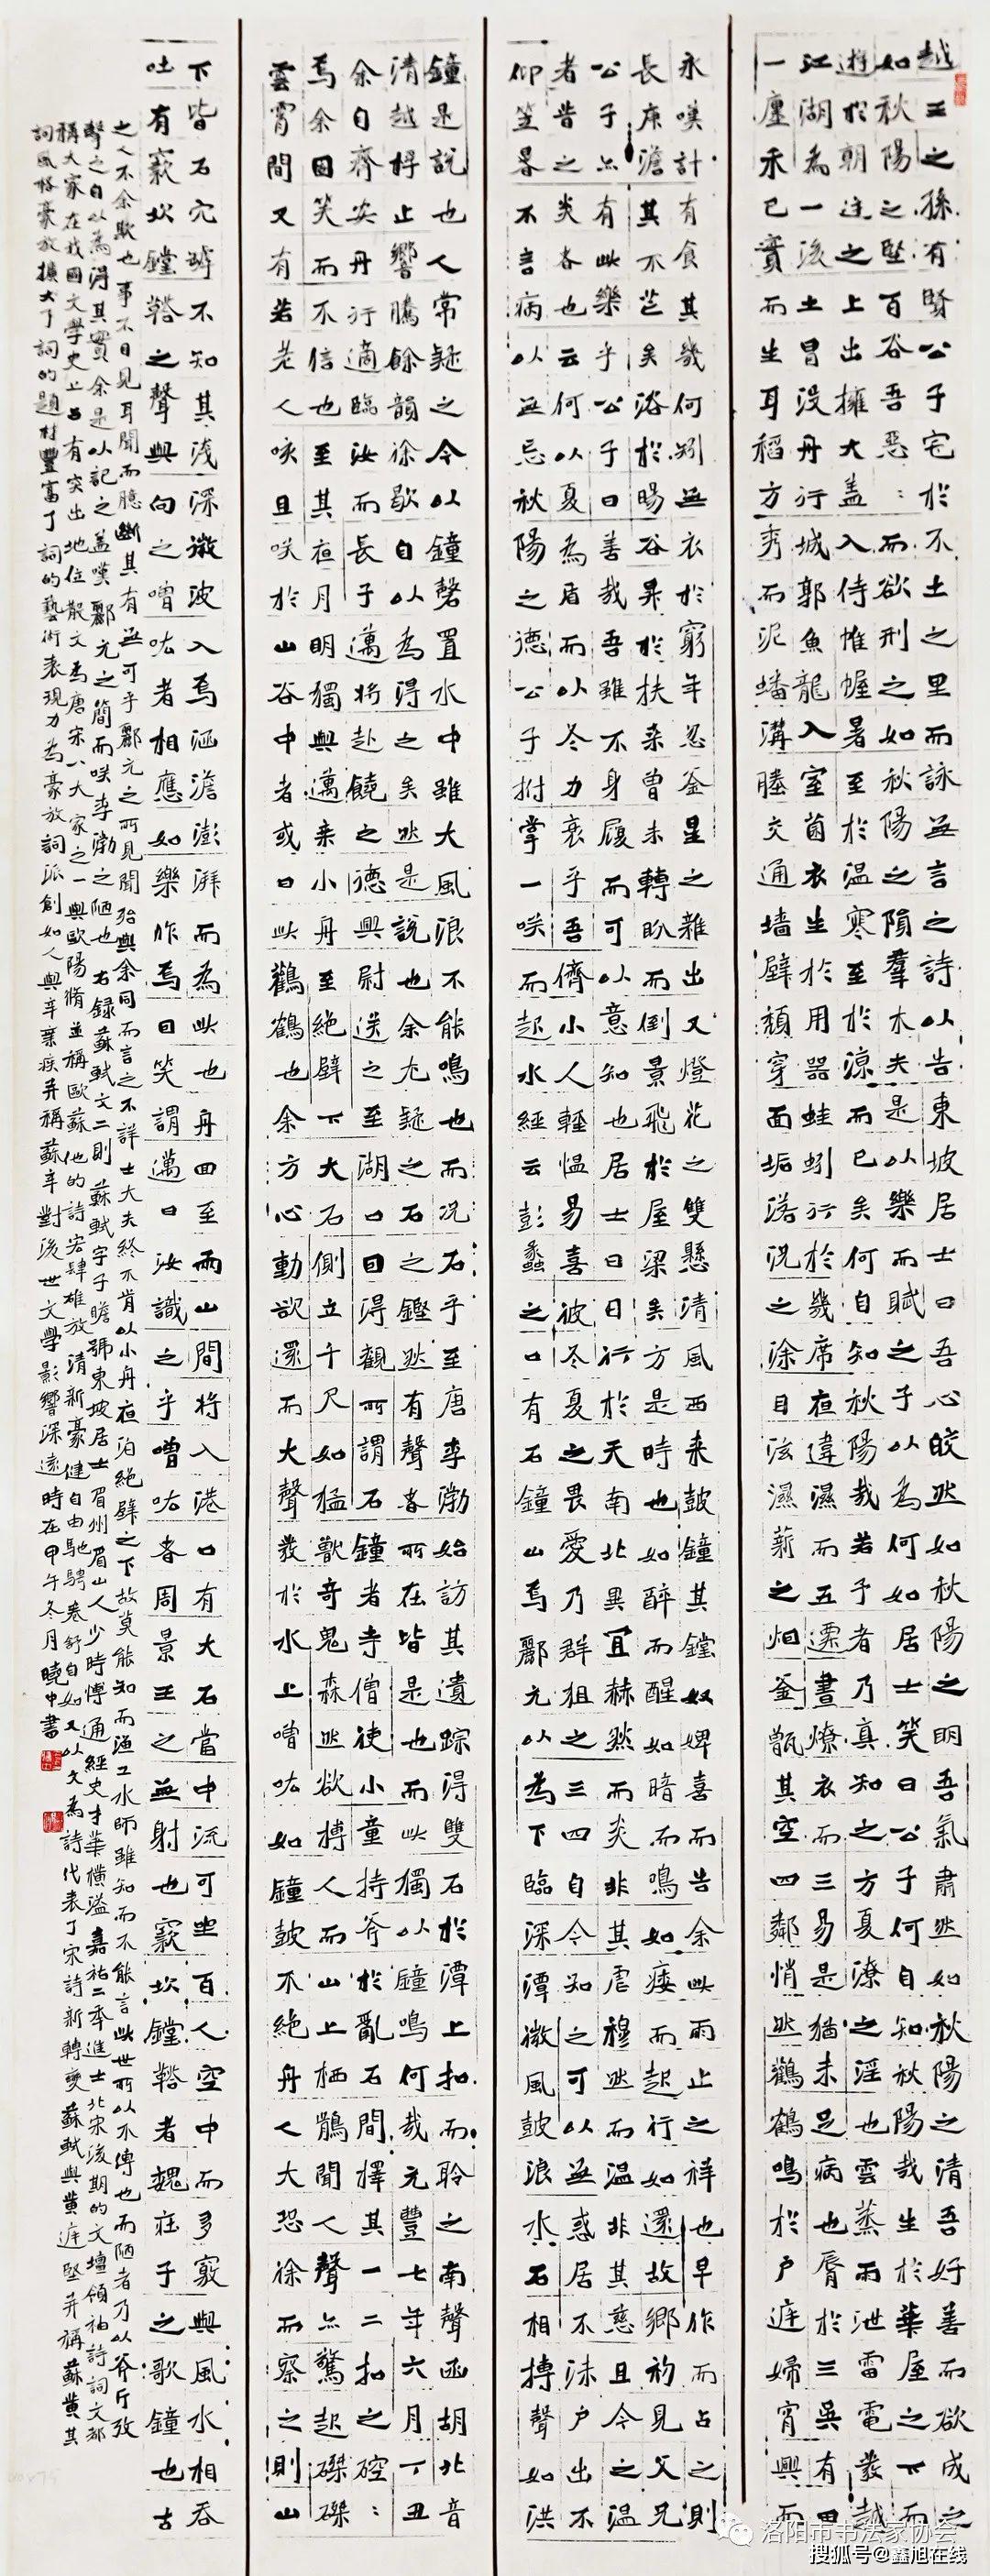 越王之孫有賢公子宅於不土之里而詠無言之詩以告東坡居士曰吾心皎然如秋陽之明吾氣肅然如秋陽之清吾好善而欲成之
如秋陽之堅百谷吾惡:而欲刑之如秋陽之隕羣木夫是以樂而賦之子以為何如居士笑曰公子何自知秋陽哉生於華屋之下而
遊於朝廷之上出擁大蓋入侍帷幄暑至於温寒至於涼而已矣何自知秋陽哉若予者乃真知之方夏潦之淫也雲蒸雨泄雷電發越
江湖為一後土冒没舟行城郭魚龍入室菌衣生於用器蛙蚓行於幾席夜違濕而五遷晝燎衣而三易是猶未足病也耕於三吳有田
一廛禾已實而生耳稻方秀而泥蟠溝塍交通墙壁頹穿面垢落況之涂目泫濕薪之烟釜甑其空四鄰悄然鸛鶴鳴於户庭婦宵興而
永嘆計有食其幾何矧無衣於窮年忽釜星之雜出又燈花之雙懸清風西来鼓鐘其鏜奴婢喜而告余此雨止之祥也早作而占之則
長庚澹其不芒矣浴於暘谷昇於扶桑曾未轉盼而倒景飛於屋梁矣方是時也如醉而醒如喑而鳴如痿而起行如還故鄉初見父兄
公子亦有此樂乎公子曰善哉吾雖不身履而可以意知也居士曰日行於天南北異宜赫然而炎非其虐穆然而温非其慈且今之温
者昔之炎者也云何以夏為盾而以冬力衰乎吾儕小人輕愠易喜彼冬夏之畏愛乃群狙之三四自今知之可以無惑居不墐户出不
仰笠暑不言病以無忘秋陽之德公子拊掌一笑而起水經云彭蠡之口有石鐘山焉酈元以為下臨深潭微風鼓浪水石相搏聲如洪
鐘是說也人常疑之今以鐘磬置水中雖大風浪不能鳴也而况石乎至唐李渤始訪其遺踪得雙石於潭上扣而聆之南聲函胡北音
清越桴止響騰餘韻徐歇自以為得之矣然是說也余尤疑之石之鏗然有聲者所在皆是也而此獨以鐘鳴何哉元豐七年六月丁丑
余自齊安舟行適臨汝而長子邁將赴饒之德興尉送之至湖口因得觀所謂石鐘者寺僧使小童持斧於亂石間擇其一二扣之硿:
焉余固笑而不信也至其夜月明獨與邁乘小舟至絶壁下大石側立千尺如猛獸奇鬼森然欲搏人而山上栖鶻聞人聲亦驚起磔磔
雲霄間又有若老人咳且笑於山谷中者或曰此鸛鶴也余方心動欲還而大聲發於水上噌吰如鐘鼓不絶舟人大恐徐而察之則山
下皆石穴罅不知其淺深微波入焉涵澹澎湃而為此也舟回至兩山間將入港口有大石當中流可坐百人空中而多竅與風水相吞
吐有窾坎鏜鞳之聲與向之噌吰者相應如樂作焉因笑謂邁曰汝識之乎噌吰者周景王之無射也窾坎鏜鞳者魏莊子之歌鐘也古
之人不余欺也事不目見耳聞而臆斷其有無可乎酈元之所見聞殆與余同而言之不詳士大夫終不肯以小舟夜泊絶壁之下故莫能知而漁工水師雖知而不能言此世所以不傳也而陋者乃以斧斤攷
聲之自以為得其實余是以記之蓋嘆酈元之簡而笑李渤之陋也右録蘇軾文二則蘇軾字子瞻號東坡居士眉州眉山人少時博通經史才華横溢嘉祐二年進士北宋後期的文壇領袖詩詞文都
稱大家在我國文學史上占有突出地位散文為唐宋八大家之一與歐陽脩並稱歐蘇他的詩宏肆雄放清新豪健自由馳騁卷舒自如又以文為詩代表了宋詩新轉變蘇軾與黄庭堅并稱蘇黄其
詞風格豪放擴大了詞的題材豐富了詞的藝術表現力為豪放詞派創始人與辛棄疾并稱蘇辛對後世文學影響深遠時在甲午冬月曉中書
洛阳市书法家协会
搜狐号@鑫旭在线